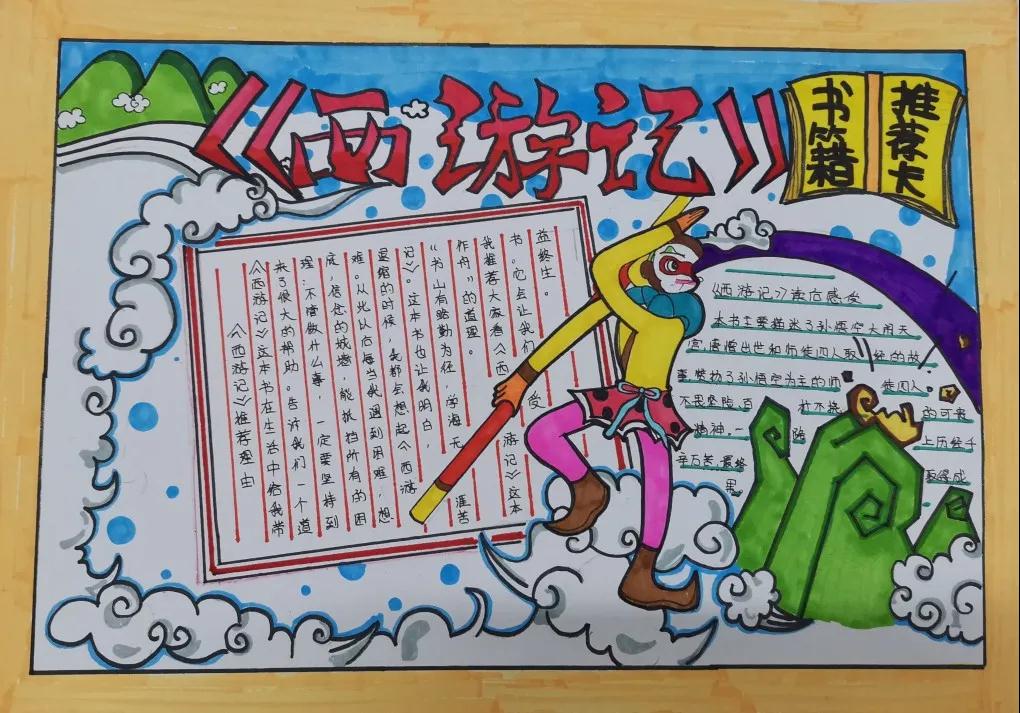 《西游记》
书籍
推荐卡
《西游记》推荐理由
《西游记》这本书在生活中给我带
来了很大的帮助。告诉我们一个道
理:不管做什么事,一定要坚持到
底,信念的城墙,能抵挡所有的困
难。从此以后每当我遇到困难,想
退缩的时候,我都会想起《西游
记》。这本书也让我明白,
“书山有路勤为径,学海无涯苦
作舟”的道理。
我推荐大家看《西游记》这本
书。它会让我们受
益终生。
《西游记》读后感受
本书主要描述了孙悟空大闹天
宫,唐僧出世和师徒四人取经的故
事,赞扬了孙悟空为主的师徒四人。
不畏坚险,百折不挠的可贵
精神,一路上历经千
辛万苦,最终取得成
果。